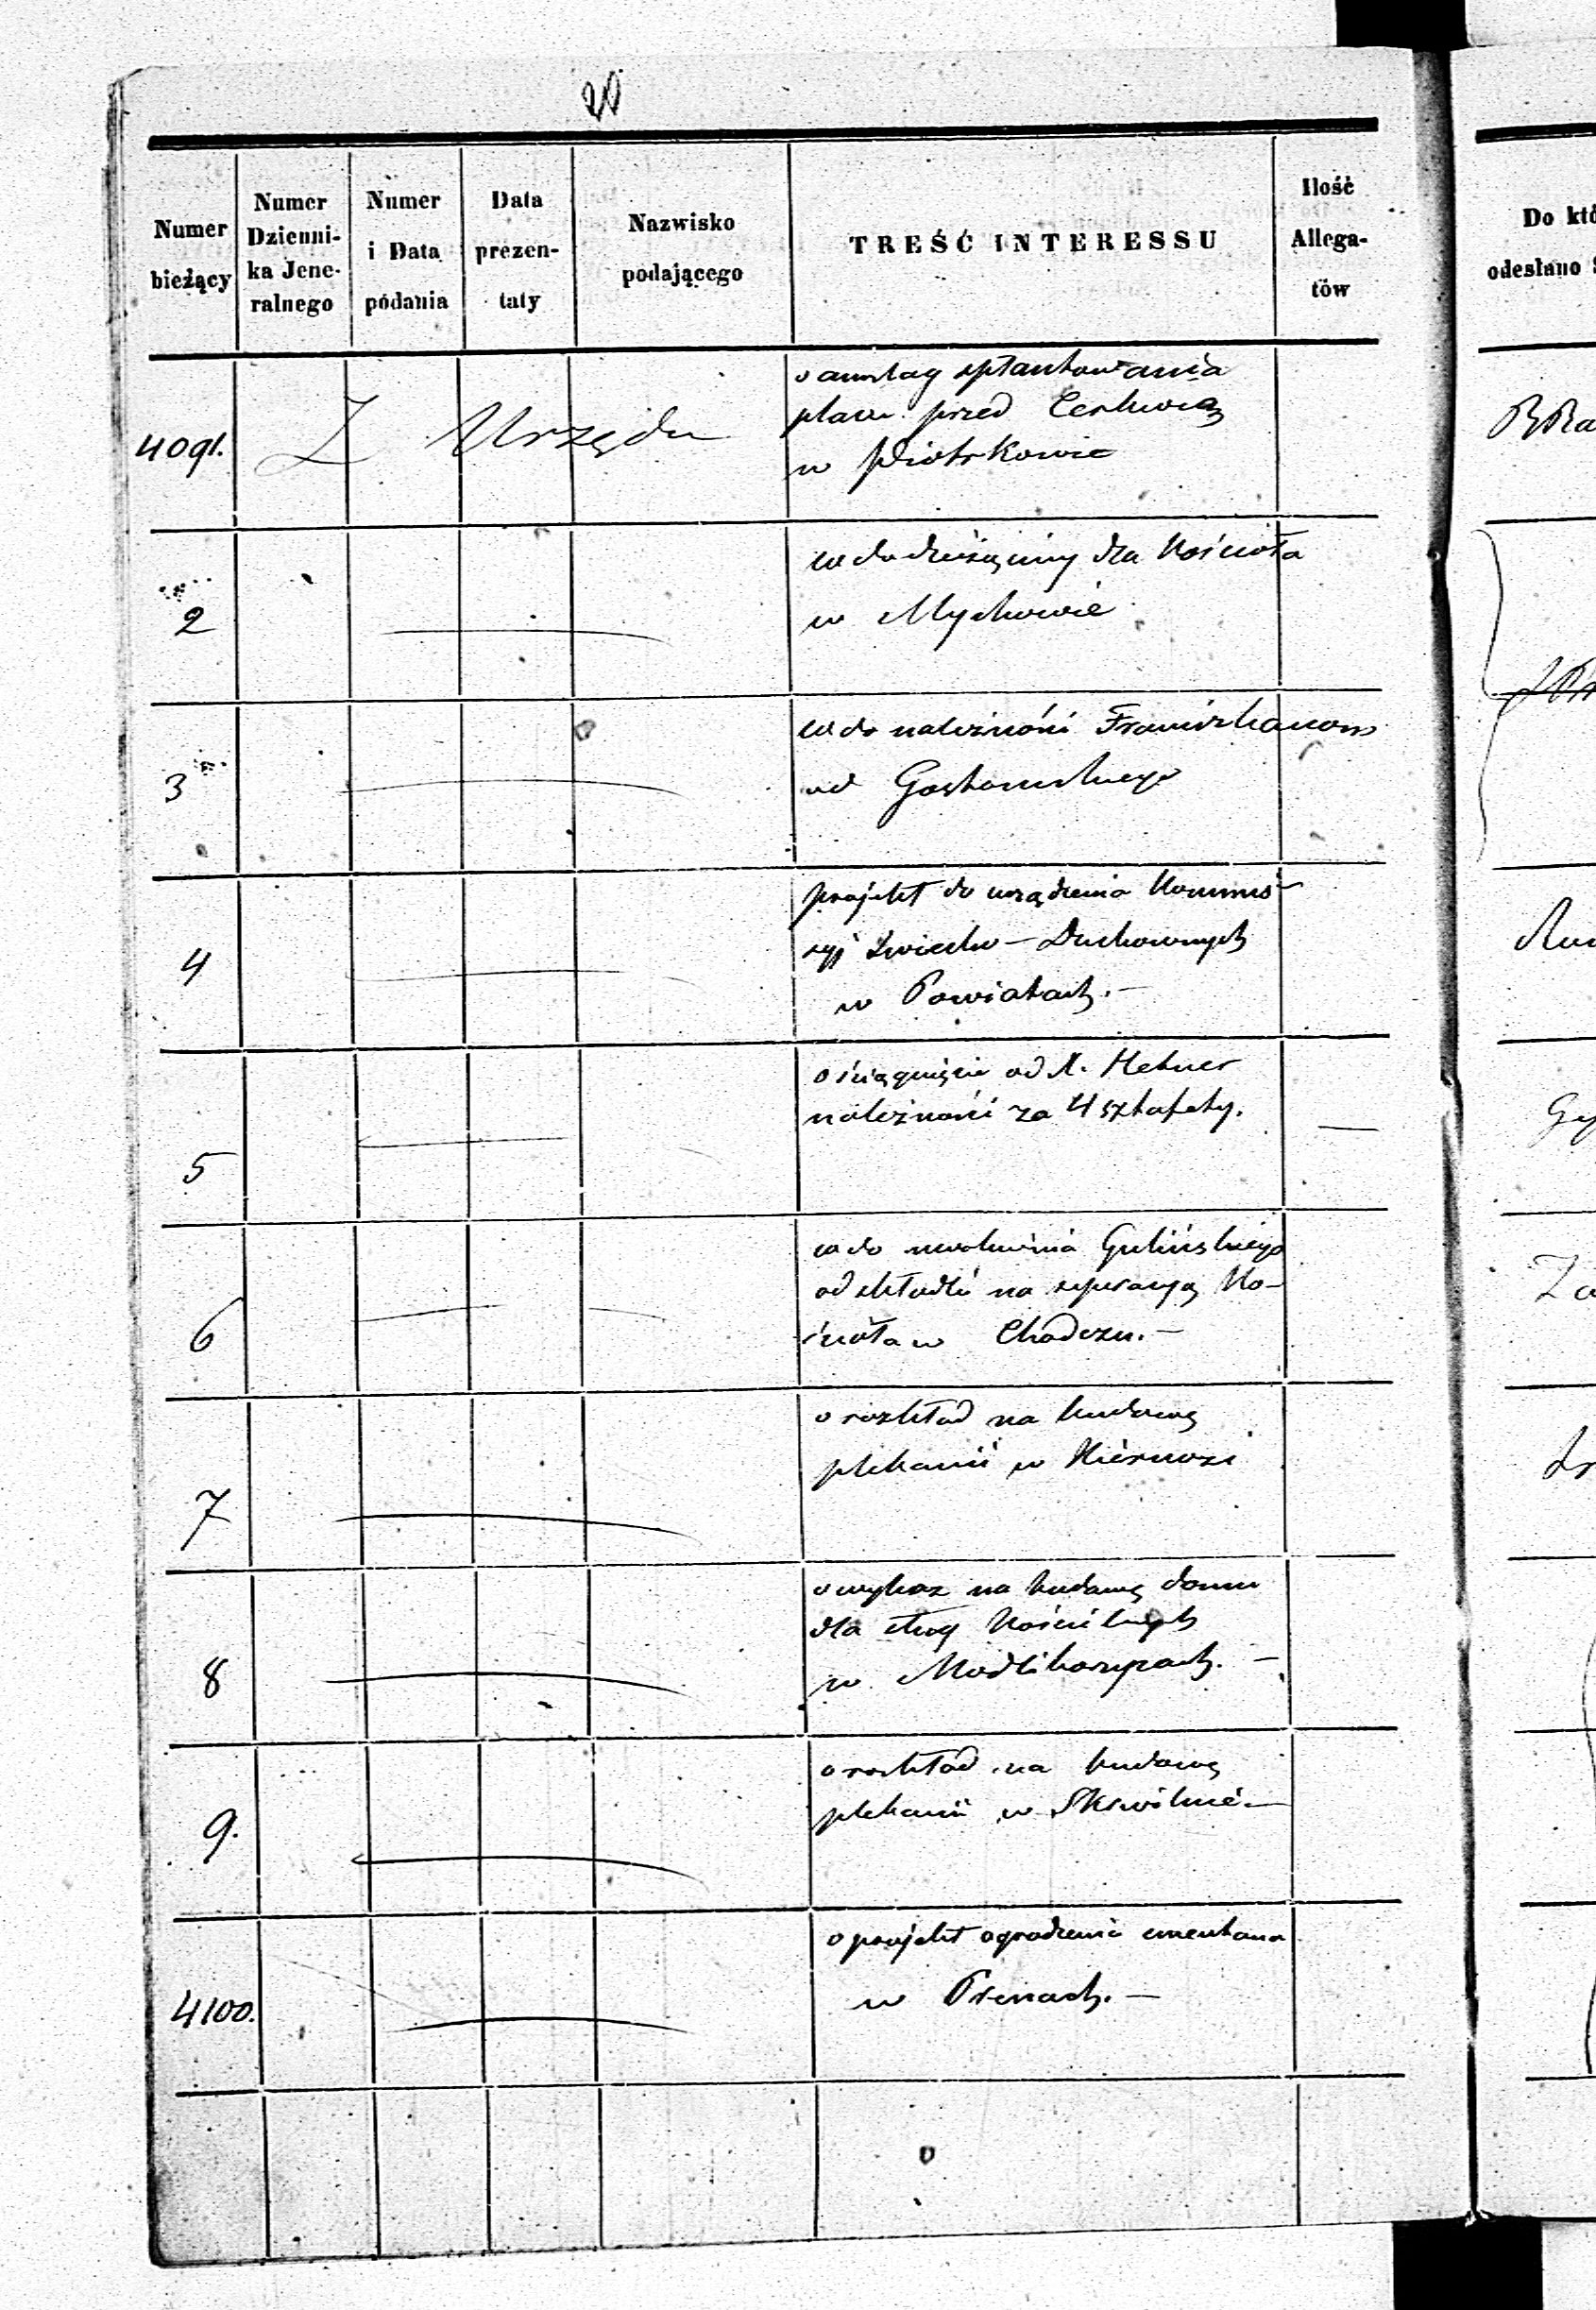 20
Numer bieżący
Numer Dzienni-ka Jene-ralnego
Numer i Data podania
Data prezen-taty
Nazwisko podającego
TREŚĆ INTERESSU
Ilość Allega-tów
Do któ
odesłano S
4091.
Z Urzędu
o anszlag splantowania
placu przed Cerkwią
w Piotrkowie
2
co do dziesięciny dla Kościoła
w Mychowie
3
co do należności Franciszkanom
od Gostomskiego
4
projekt do urządzenia Kommis-
syj Świecko-Duchownych
w Powiatach.-
5
o ściągnięcie od Hetner
należności za 4 sztafety.
6
co do uwolnienia Gulińskiego
od składki na reperacyą Ko-
ścioła w Chodczu.-
7
o rozkład na budowę
plebanii w Kiernozi
8
o wykaz na budowę domu
dla sług Kościelnych
w Modliborzycach.-
9.
o rozkład na budowę
plebanii w Skrwilnie-
4100.
o projekt ogrodzenia cmentarza
w Prenach.-